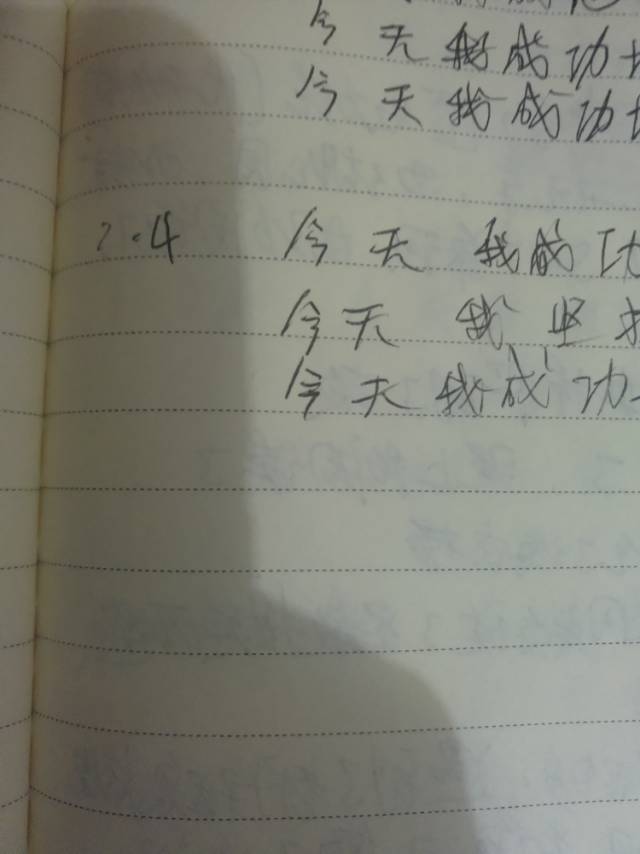 今天我成功
今天我成功
7.4 今天我成功
今天我坚
今天我成功